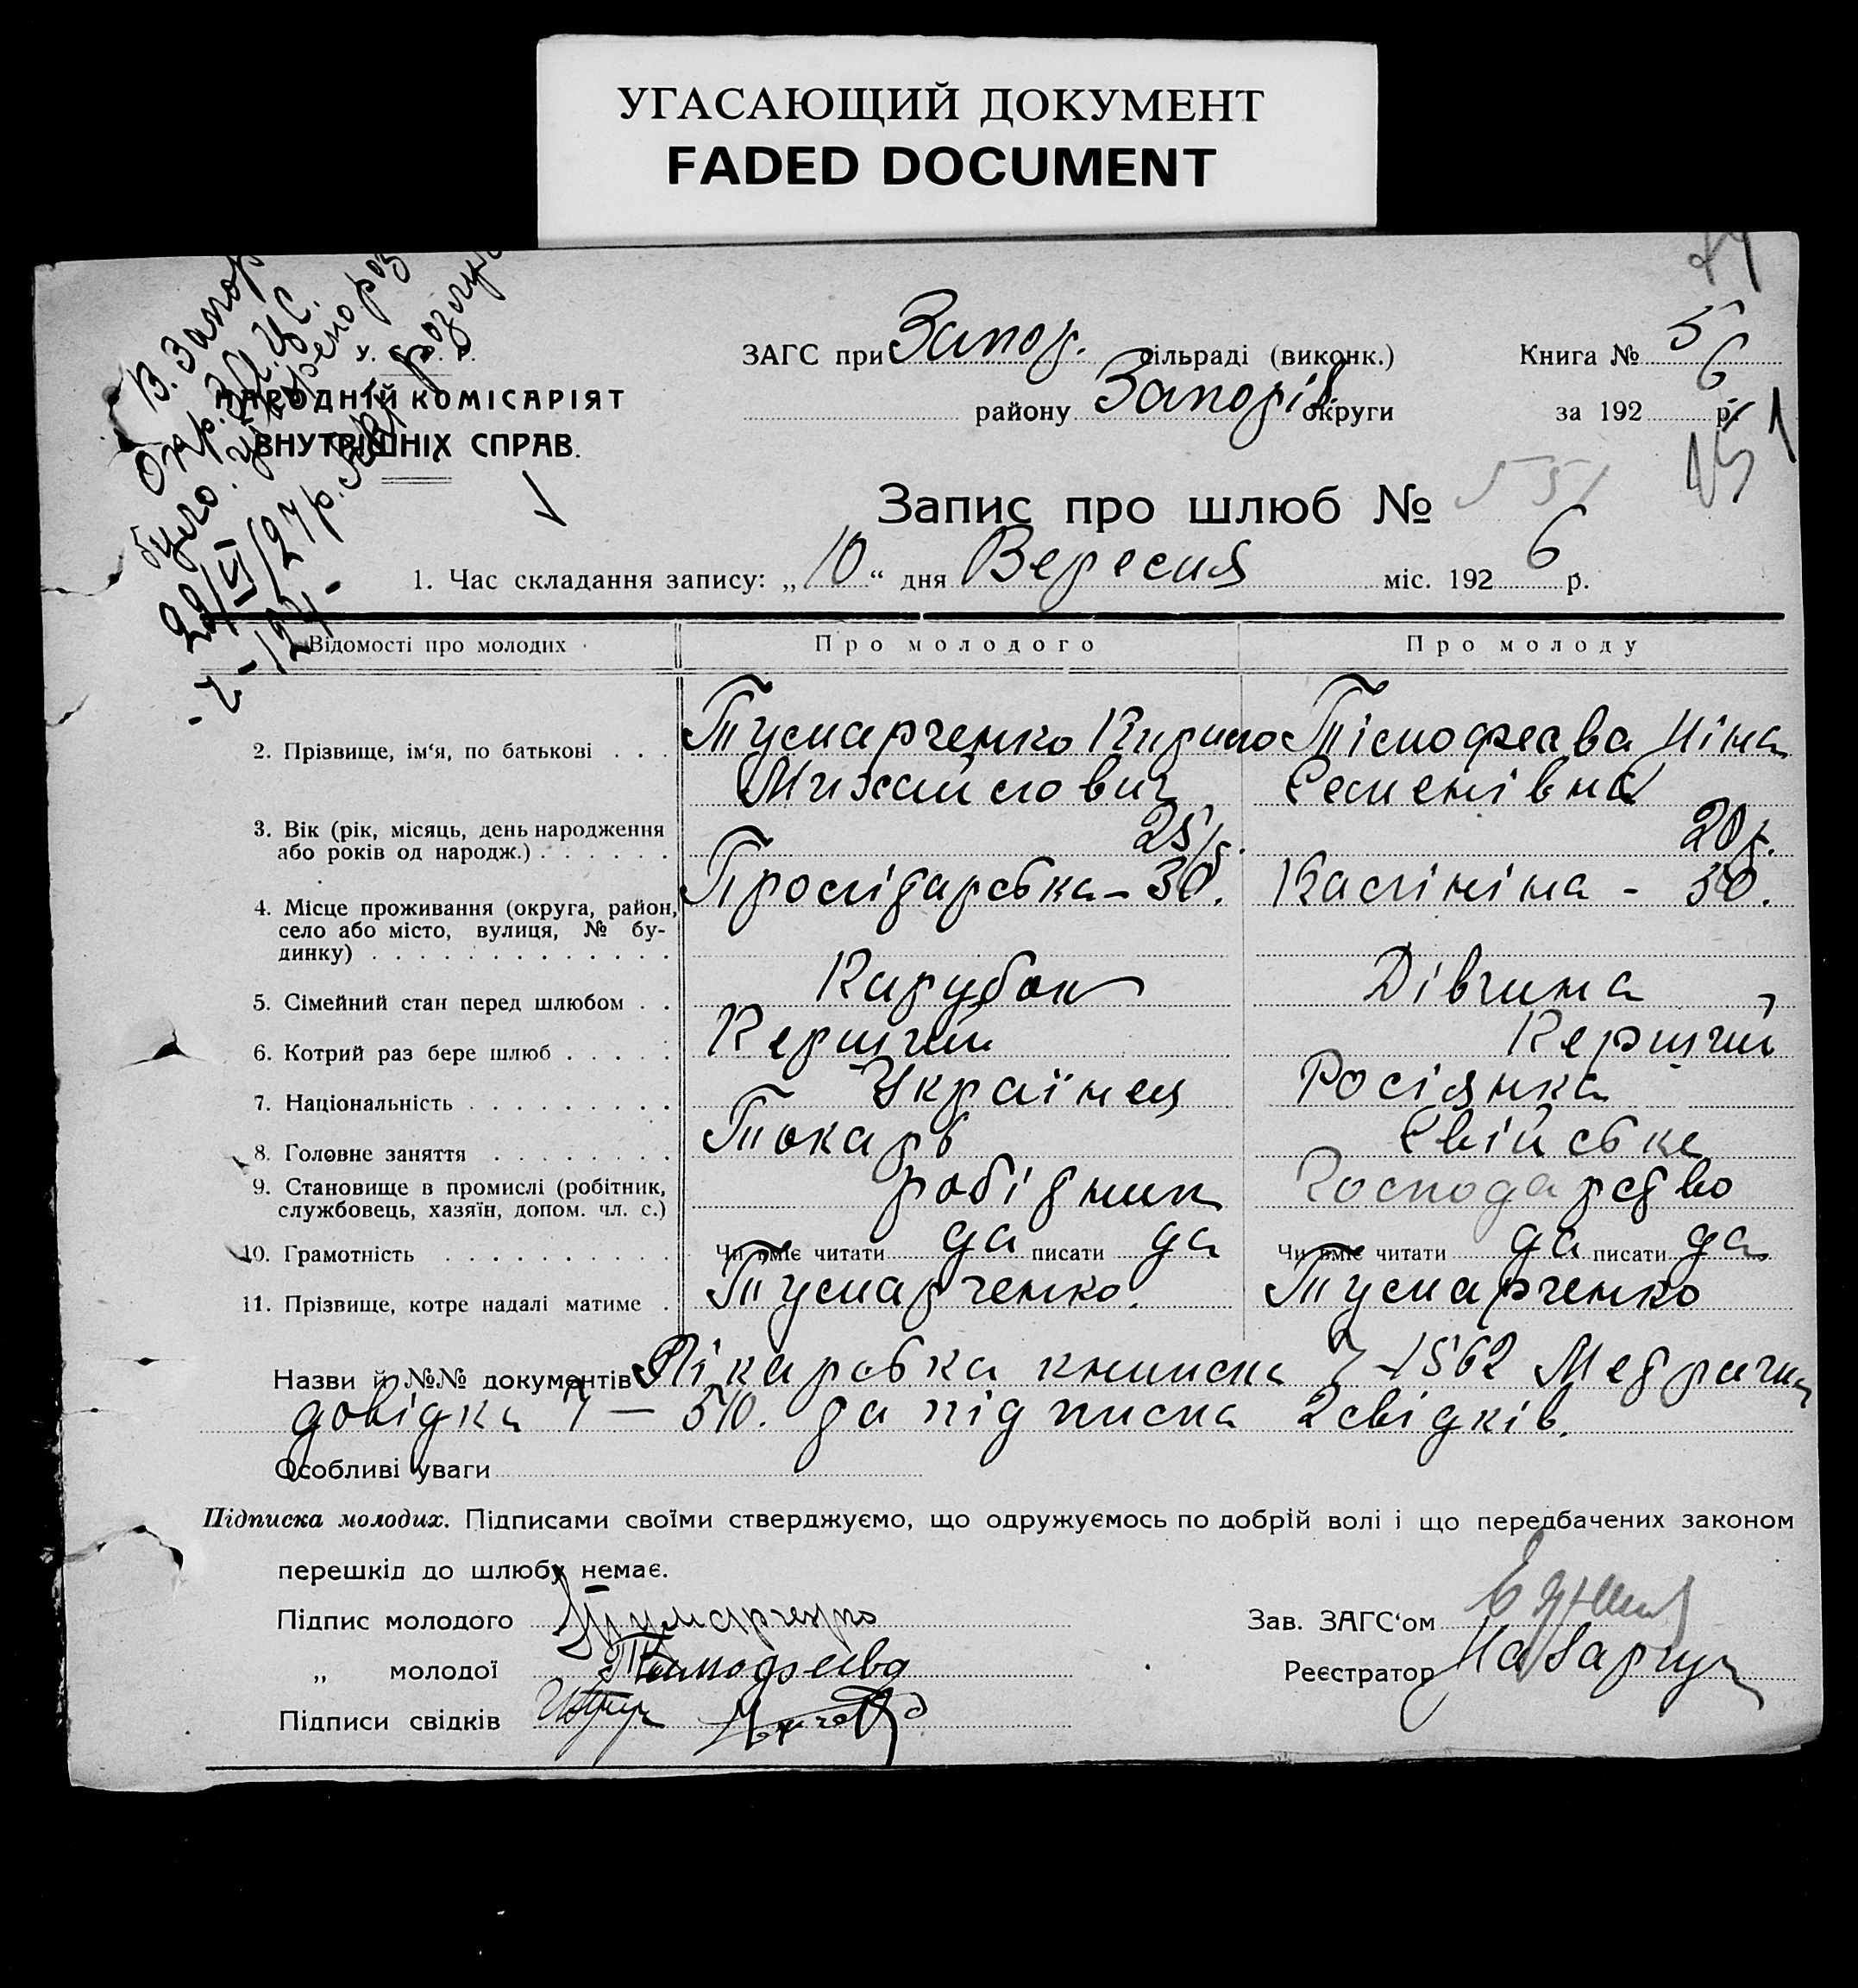 УГАСАЮЩИЙ ДОКУМЕНТ
FADED DOCUMENT
В. Запор
Окр. ЗАГС.
було
29/VI/27р.
НАРОДНІЙ КОМІСАРІЯТ
ВНУТРІШНІХ СПРАВ.
ЗАГС при Запор. сільраді (виконк.)
району Запоріж. округи
Книга № 5
за 192 6 р.
151
Запис про шлюб № 551
1. Час складання запису: „10“ дня Вересня міс. 1926 р.
Відомості про молодих Про молодого Про молоду
2. Прізвище, ім‘я, по батькові . . . Тумарченко Кирило Тімофеєва Ніна
Михайлович Семенівна
3. Вік (рік, місяць, день народження 25р. 20р.
або років од народж.) . . . . . .
4. Місце проживання (округа, район, Пролітарська – 30. Калініна - 30.
село або місто, вулиця, № бу-
динку) . . . . . . . . . . . . .
5. Сімейний стан перед шлюбом . . Парубок Дівчина
6. Котрий раз бере шлюб . . . . . Перший Перший
7. Національність . . . . . . . . . Українец Росіянка
8. Головне заняття . . . . . . . . Токарь Свійське
9. Становище в промислі (робітник, робітник Господарство
службовець, хазяїн, допом. чл. с.)
10. Грамотність . . . . . . . . . . Чи вміє читати да писати да Чи вміє читати да писати да
11. Прізвище, котре надалі матиме . Тумарченко. Тумарченко
Назви й №№ документів Лікарська книжка 7-1562
довідка 7 – 510. та підписка 2 свідків.
Особливі уваги
Підписка молодих. Підписами своїми стверджуємо, що одружуємось по добрій волі і що передбачених законом
перешкід до шлюбу немає.
Підпис молодого Тумарченко
Зав. ЗАГС‘ом
„ молодої Тимофеева
Реєстратор
Підписи свідків